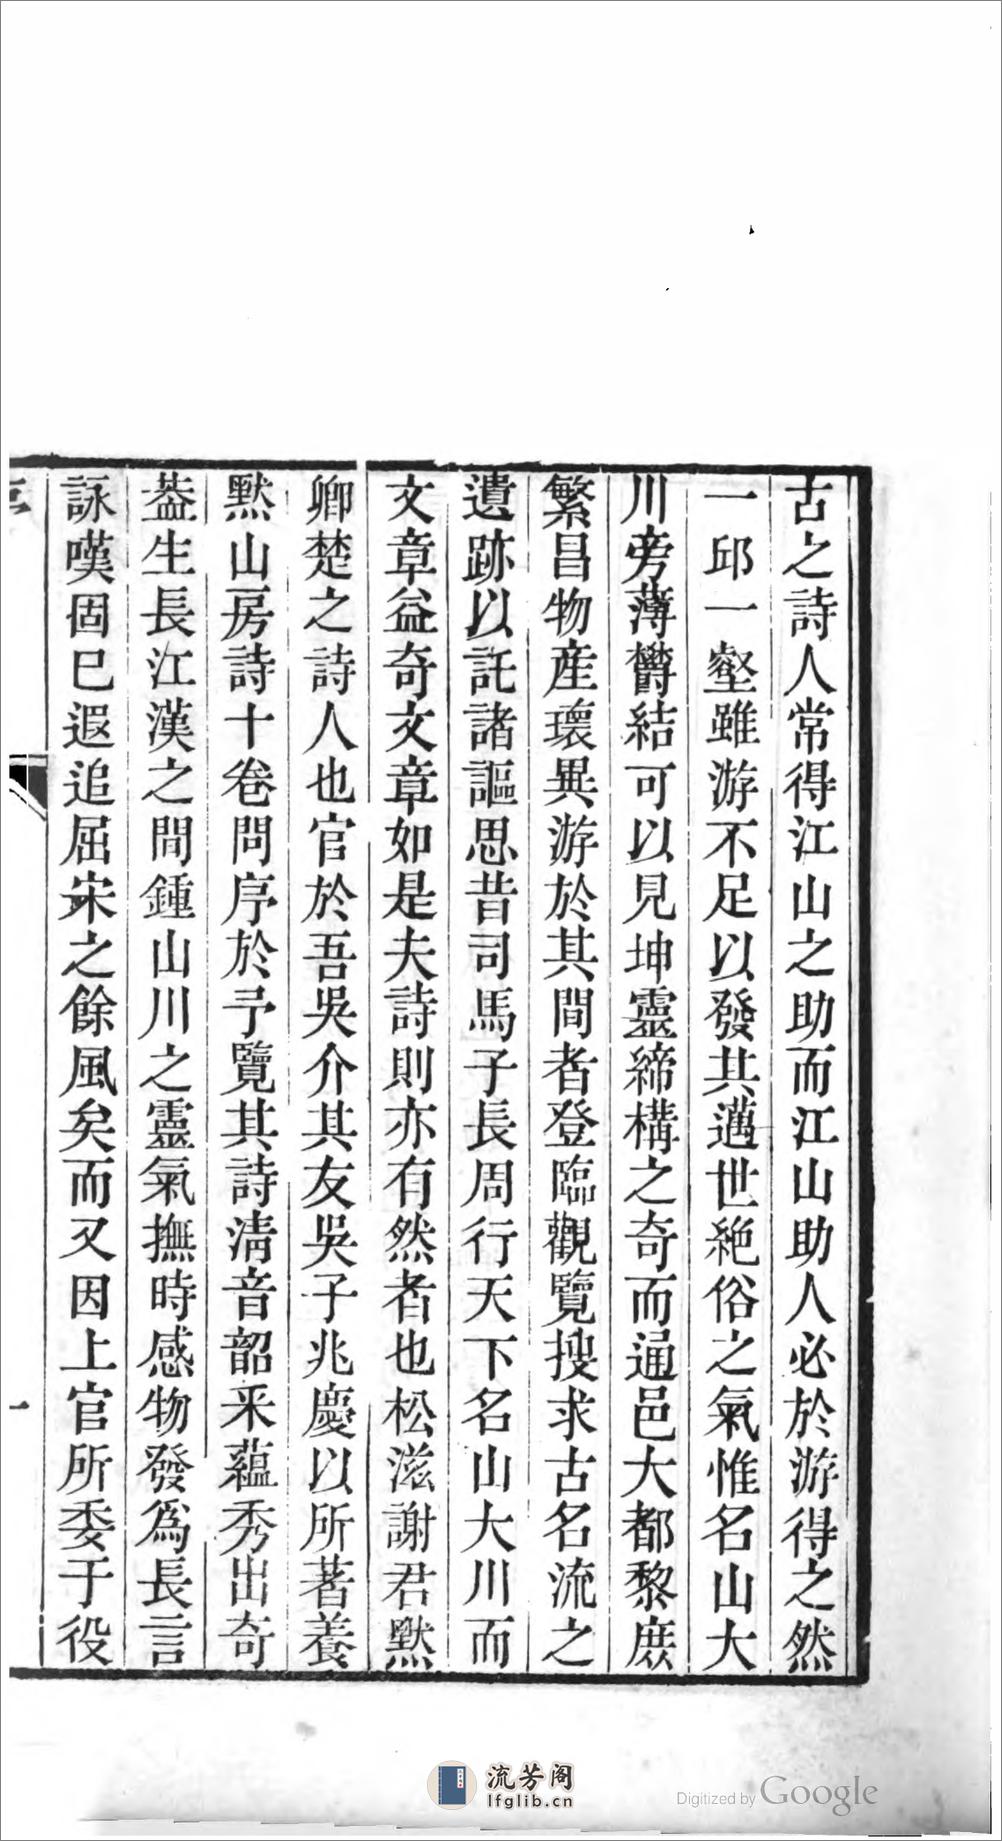 古之詩人常得江山之助而江山助人必於游得之然
一邱一壑雖游不足以發其邁世絶俗之氣惟名山大
川旁薄欝結可以見坤靈締構之奇而通邑大都黎庶
繁昌物産瓌異游於其間者登臨觀覽搜求古名流之
遺跡以託諸謳思昔司馬子長周行天下名山大川而
文章益奇文章如是夫詩則亦有然者也松滋謝君默
卿楚之詩人也官於吾吳介其友吳子兆慶以所著養
默山房詩十卷問序於予覽其詩清音韶采蘊秀出奇
葢生長江漢之間鍾山川之靈氣撫時感物發爲長言
詠嘆固已遐追屈宋之餘風矣而又因上官所委于役
一
流芳阁
lfglib.cn
Digitized by Google